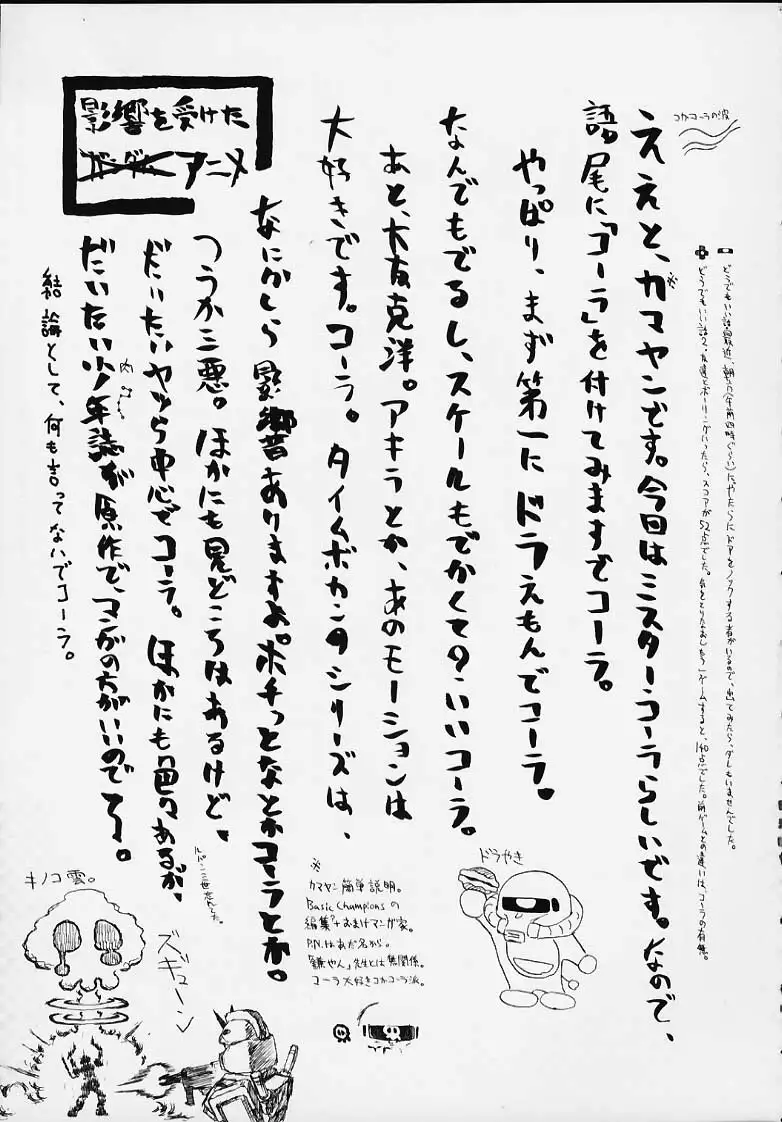 影響を受けた
ガンダム アニメ
コカコーラの波
どうでもいい話 最近、朝方(午前四時ぐらい)にやたらにドアをノックする者がいるので、出てみたら、ダレもいませんでした。
どうでもいい話2、友達とボーリングいったら、スコアが52点でした。気をとりなおしもう1ゲームすると、140点でした。前ゲームとの違いは、コーラの有無。
ええと、カマヤンです。今回はミスターコーラらしいです。なので、
※
語尾に「コーラ」を付けてみますでコーラ。
やっぱり、まず第一にドラえもんでコーラ。
なんでもでるし、スケールもでかくての、いいコーラ。
あと、大友克洋。アキラとか、あのモーションは
大好きです。コーラ。タイムボカンのシリーズは、
なにかしら影響ありますよ。ポチっとなとかコーラとか。
つうか三悪。ほかにも見どころはあるけど、
だいたいヤツら中心でコーラ。ほかにも色々あるが、
ルパン三世忘れてた。
だいたい少年誌が原作で、マンガの方がいいのでコーラ。
結論として、何も言ってないでコーラ。
ドラやき
※
カマヤン簡単説明。
Basic Championsの
編集?+おまけマンガ家。
P.N.はあだ名から。
「鎌やん」先生とは無関係。
コーラ大好きコカコーラ派。
キノコ雲。
ズギューン